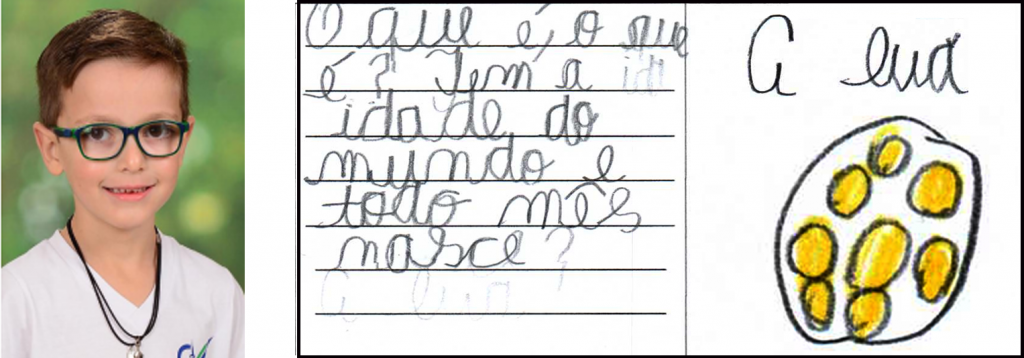 O que é, o que
é? Tem a
idade do
mundo e
todo mês
nasce?
A lua
A lua